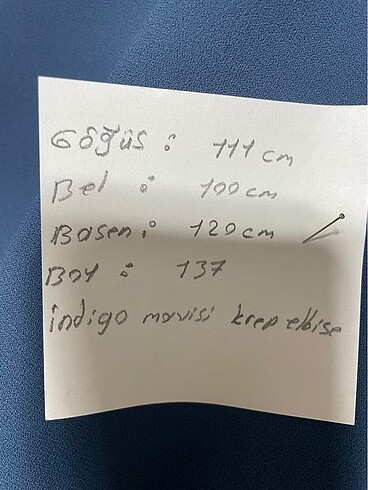 Göğüs : 111 cm
Bel : 100 cm
Basen : 120 cm
Boy : 137
indigo mavisi krep elbise